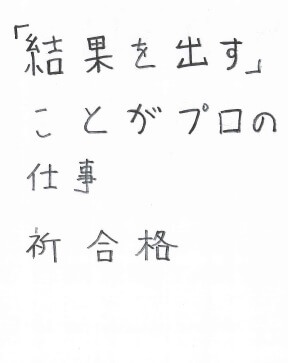 「結果を出す」
ことがプロの
仕事
祈合格